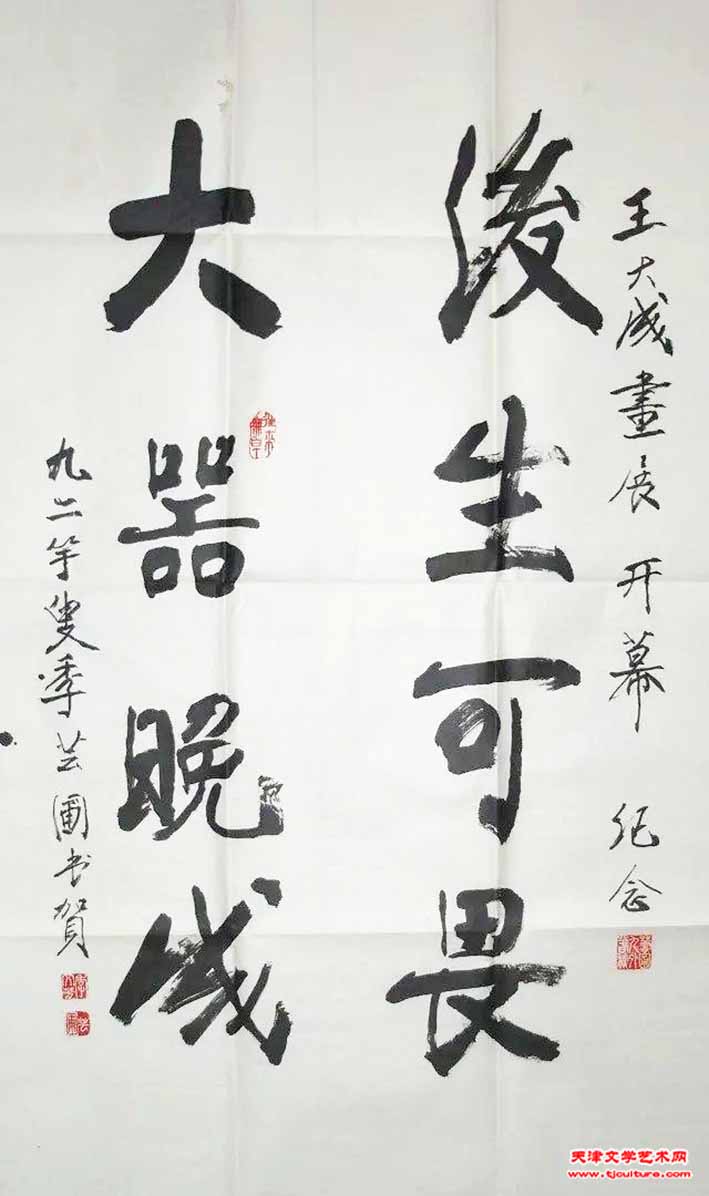 王大成畫展 开幕 纪念
後生可畏
大器晚成
九二竿叟季芸圃书贺
天津文学艺术网
www.tjculture.com